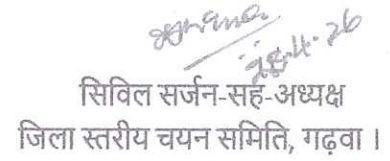 28.4.26
सिविल सर्जन-सह-अध्यक्ष
जिला स्तरीय चयन समिति, गढ़वा ।